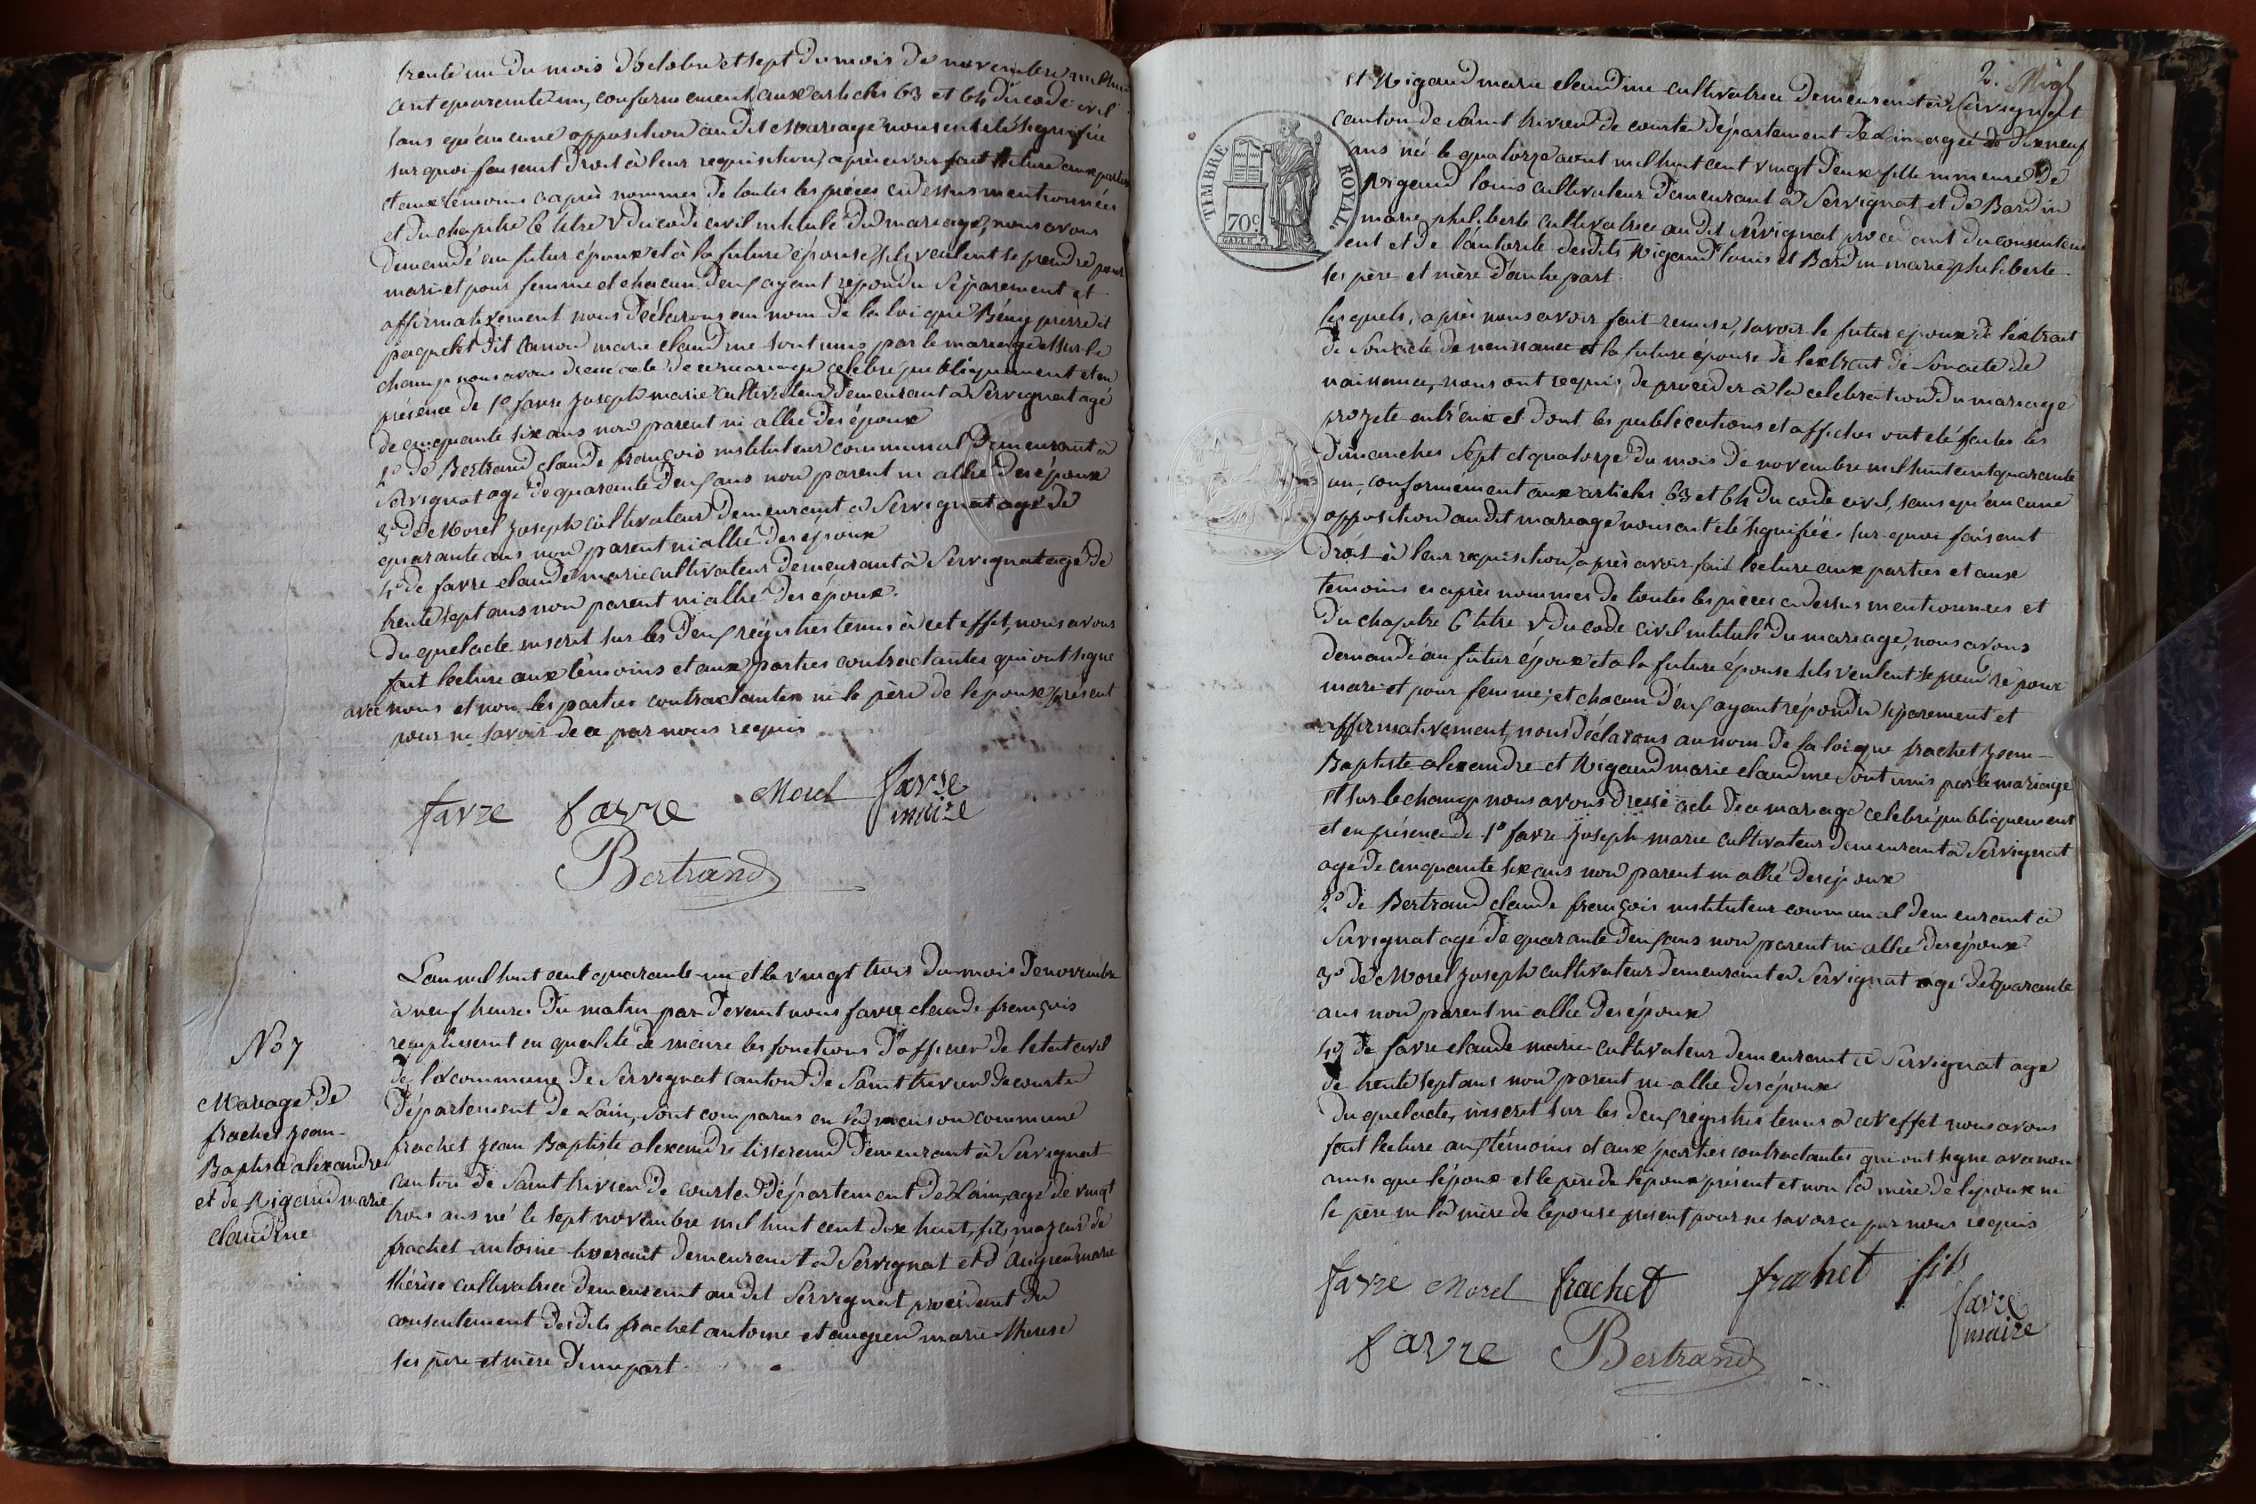 trente un du mois d'octobre et sept du mois de novembre mil huit
cent quarante un, conformement aux articles 63 et 64 du code civil
sans qu'aucune opposition au dit mariage nous ait été signifiée
sur quoi faisant droit à leur requisition, après avoir fait lecture aux parties
et aux témoins ci après nommés de toutes les pièces ci dessus mentionnées
et du chapitre 6 titre V du code civil intitulé du mariage, nous avons
demandé au futur époux et à la future épouse s'ils veulent se prendre pour
mari et pour femme et chacun d'eux ayant répondu séparement et
affirmativement nous déclarons au nom de la loi que Bény pierre et
paquelet dit marie claudine sont unis par le mariage et sur le
champ nous avons dressé acte de ce mariage célébré publiquement et en
présence de 1º favre joseph marie cultivateur demeurant à Servignat agé
de cinquante six ans non parent ni allié des époux
2º de Bertrand claude françois instituteur communal demeurant à
Servignat agé de quarante deux ans non parent ni allié des époux
3º de Morel joseph cultivateur demeurant à Servignat agé de
quarante ans non parent ni allié des époux
4º de favre claude marie cultivateur demeurant à Servignat agé de
trente sept ans non parent ni allié des époux.
Du quel acte inscrit sur les deux régistres tenus à cet effet, nous avons
fait lecture aux témoins et aux parties contractantes qui ont signé
avec nous et non les parties contractantes ni le père de l'epoux présent
pour ne savoir de ce par nous requis
favre favre Morel favre
maire
Bertrand
L'an mil huit cent quarante un et le vingt trois du mois de novembre
à neuf heures du matin par devant nous favre claude françois
remplissant en qualité de maire les fonctions d'officier de l'etat civil
de la commune de Servignat canton de Saint trivier de courtes
Département de Lain, sont comparus en la maison commune
frachet jean Baptiste alexandre tisserand demeurant à Servignat
canton de Saint trivier de courtes Département de Lain, agé de vingt
trois ans né le sept novembre mil huit cent dix huit, fils majeur de
frachet antoine tisserant demeurant à Servignat et d' marie
thérèse cultivatrice demeurant au dit Servignat procédant du
consentement desdits frachet antoine et marie thérèse
ses père et mère d'une part
No 7
Mariage de
frachet jean
Baptiste alexandre
et de Nigaud marie
claudine
2.
et Nigaud marie claudine cultivatrice demeurant à Servignat
canton de Saint trivier de courtes Département de Lain agée de dix neuf
ans née le quatorze aout mil huit cent vingt deux fille mineure de
Nigaud louis cultivateur demeurant à Servignat et de Bardin
marie philiberte cultivatrice au dit Servignat procedant du consentem
ent et de l'autorité desdits Nigaud louis et Bardin marie philiberte
ses père et mère d'autre part
TIMBRE ROYAL
70c
Lesquels, après nous avoir fait remise, savoir le futur époux de l'extrait
de son acte de naissance et la future épouse de l'extrait de son acte de
naissance, nous ont requis de procéder à la célébration du mariage
projeté entr'eux et dont les publications et affiches ont été faites les
dimanches sept et quatorze du mois de novembre mil huit cent quarante
un, conformement aux articles 63 et 64 du code civil, sans qu'aucune
opposition au dit mariage nous ait été signifiée. sur quoi faisant
droit à leur requisition, après avoir fait lecture aux parties et aux
témoins ci après nommés de toutes les pièces ci dessus mentionnées et
du chapitre 6 titre V du code civil intitulé du mariage, nous avons
demandé au futur époux et a la future épouse s'ils veulent se prendre pour
mari et pour femme; et chacun d'eux ayant répondu séparement et
affirmativement, nous déclarons au nom de la loi que frachet jean
Baptiste alexandre et Nigaud marie claudine sont unis par le mariage
et sur le champ nous avons dressé acte de ce mariage celebré publiquement
et en présence de 1º favre joseph marie cultivateur demeurant à Servignat
agé de cinquante six ans non parent ni allié des époux
2º de Bertrand claude françois instituteur communal demeurant à
Servignat agé de quarante deux ans non parent ni allié des époux
3º de Morel joseph cultivateur demeurant à Servignat agé de quarante
ans non parent ni allié des époux
4º de favre claude marie cultivateur demeurant à Servignat agé
de trente sept ans non parent ni allié des époux
Du quel acte, inscrit sur les deux régistres tenus à cet effet nous avons
fait lecture aux témoins et aux parties contractantes qui ont signé avec nous
ainsi que l'époux et le père de l'époux présent et non la mère de l'époux ni
le père ni la mère de l'epouse present pour ne savoir ce par nous requis
favre Morel frachet frachet fils
favre
maire
favre Bertrand